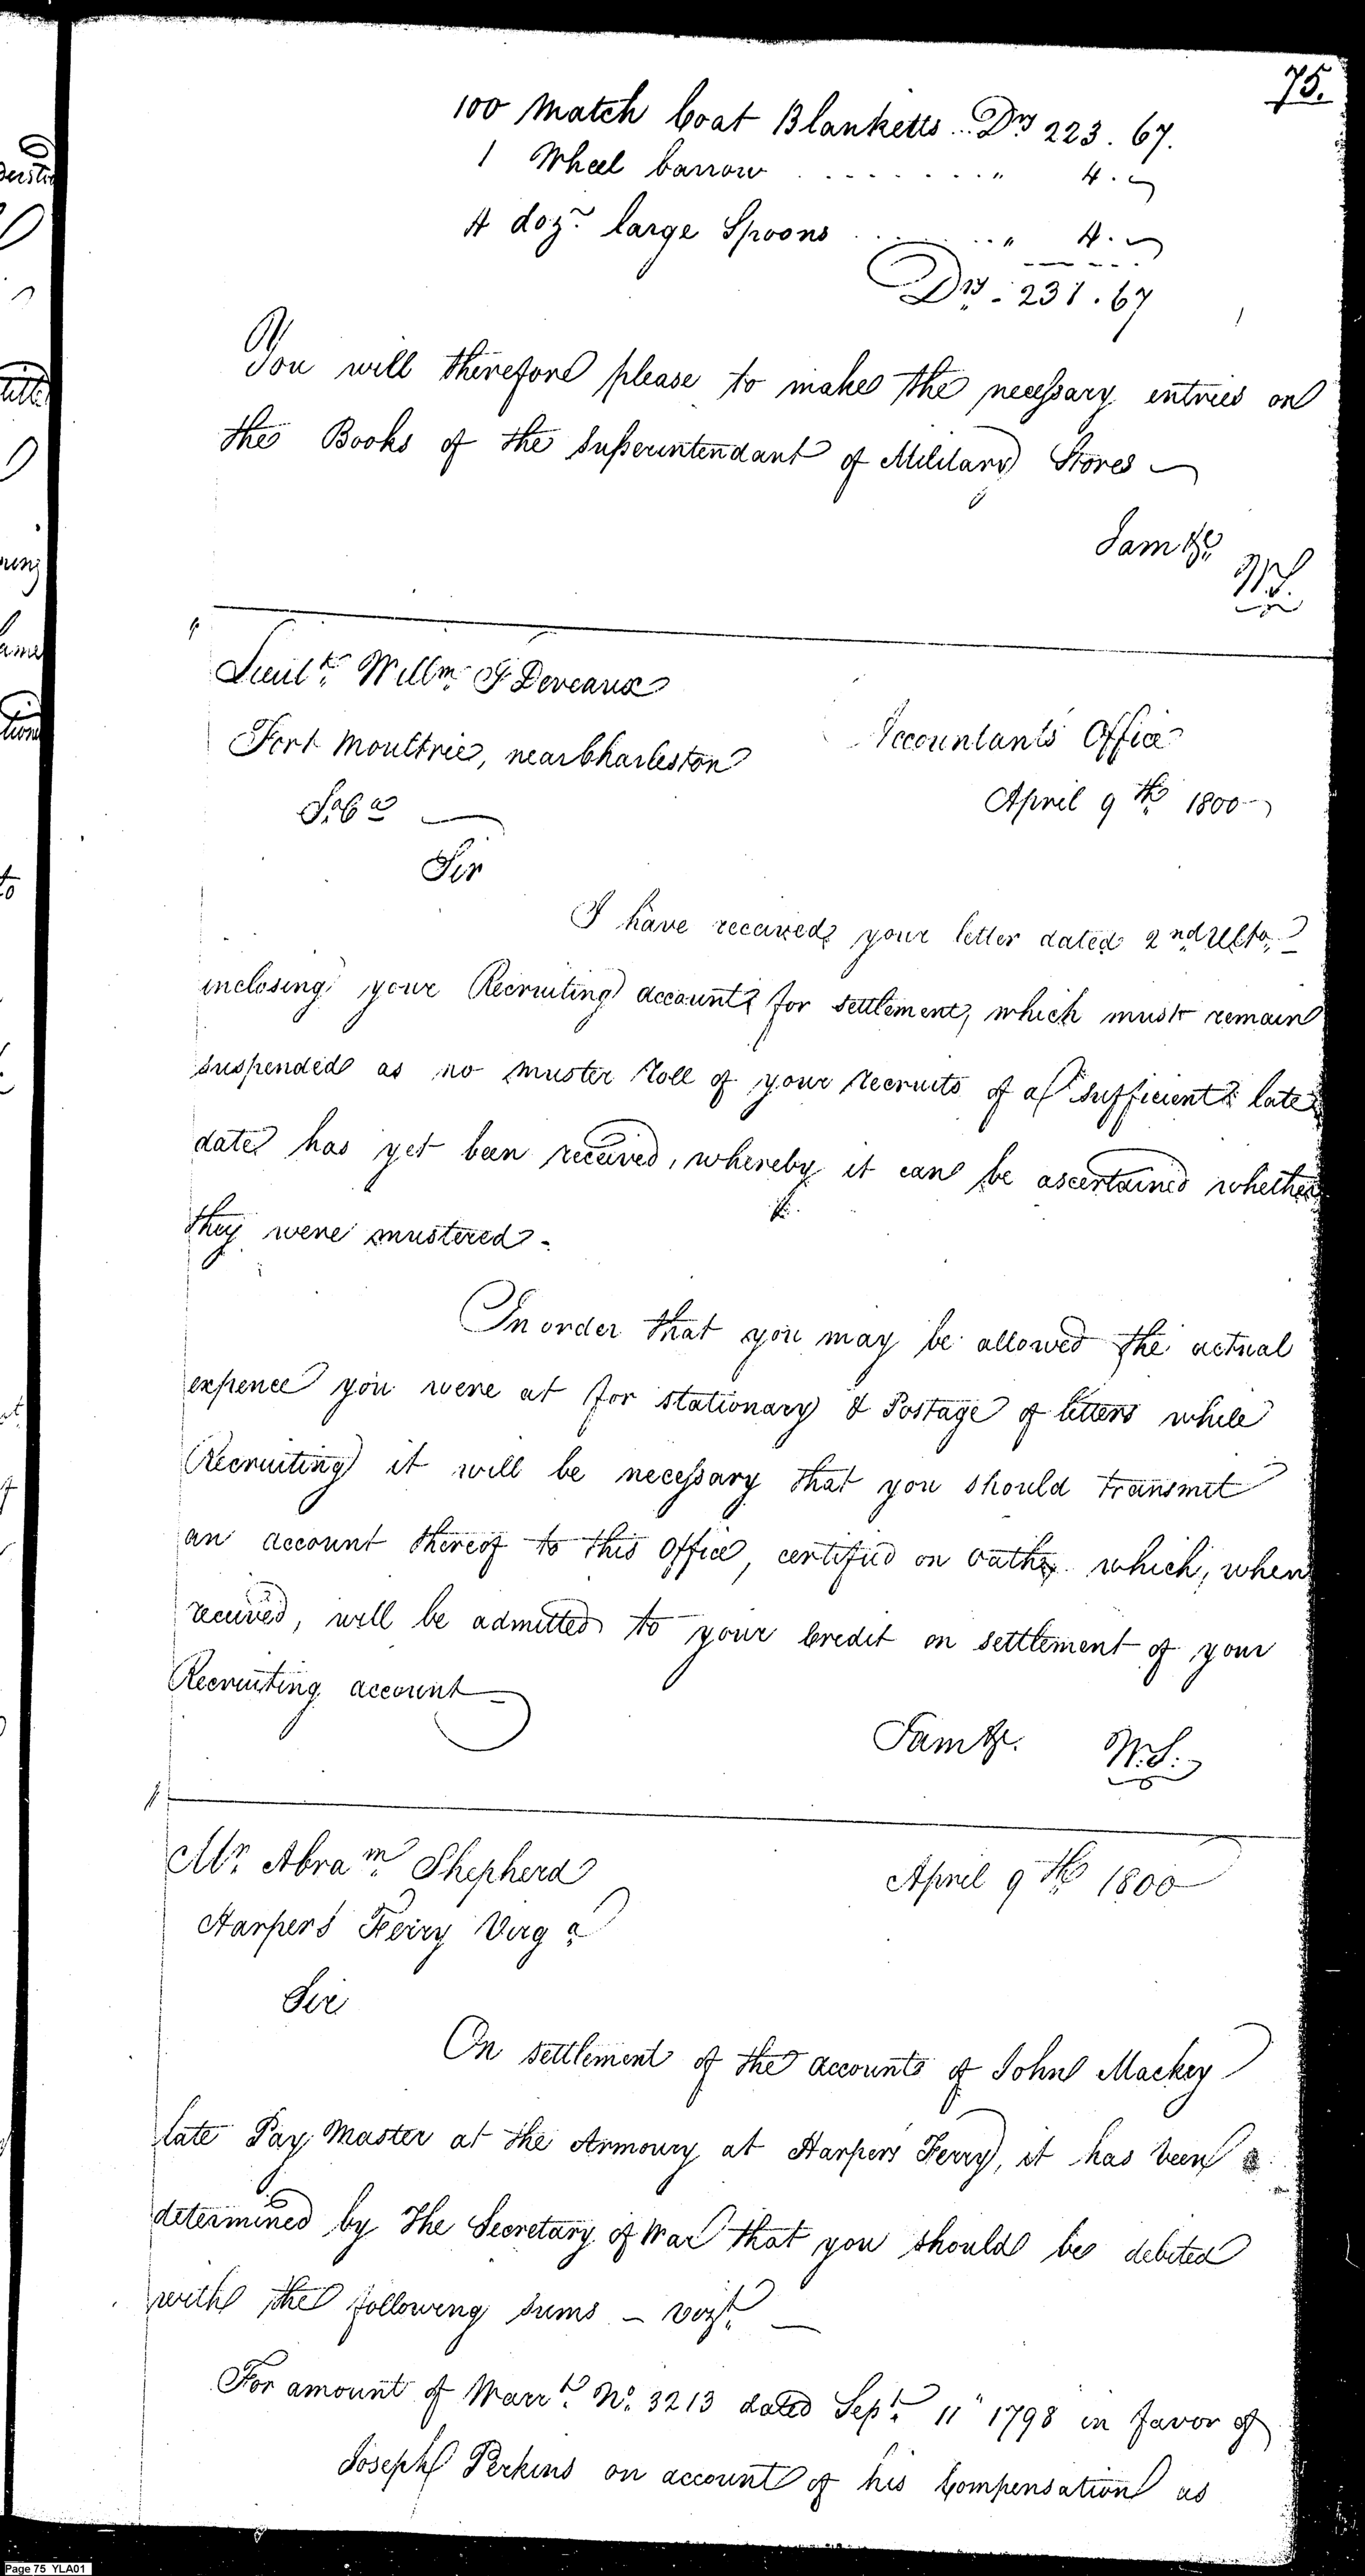 75.
100 Match Coat Blanketts ... Drs 223. 67.
1 Wheel barrow . . . . . . . . " 4. ~
4 doz. large Spoons . . . . . . " 4. ~
Drs. 231. 67
You will therefore please to make the necessary entries on
the Books of the Superintendant of Military Stores ~
I am &c.
W.S.
Lieut. Willm. F Deveaux
Accountants Office
Fort Moultrie, near Charleston
April 9th 1800
So. Ca
Sir
I have received your letter dated 2nd Ulto.
inclosing your Recruiting account for settlement, which must remain
suspended as no muster roll of your recruits of a sufficient late
date has yet been received, whereby it can be ascertained whether
they were mustered.
In order that you may be allowed the actual
expence you were at for stationary & Postage of letters while
Recruiting it will be necessary that you should transmit
an account thereof to this Office, certified on oath, which, when
received, will be admitted to your Credit on settlement of your
Recruiting account
I am &c. W.S.
Mr. Abram. Shepherd
April 9th 1800
Harpers Ferry Virga
Sir
On settlement of the accounts of John Mackey
late Pay Master at the Armoury at Harpers Ferry, it has been
determined by The Secretary of War that you should be debited
with the following sums – vizt. –
For amount of Warrt. No. 3213 dated Sept. 11" 1798 in favor of
Joseph Perkins on account of his Compensation as
Page 75 YLA01